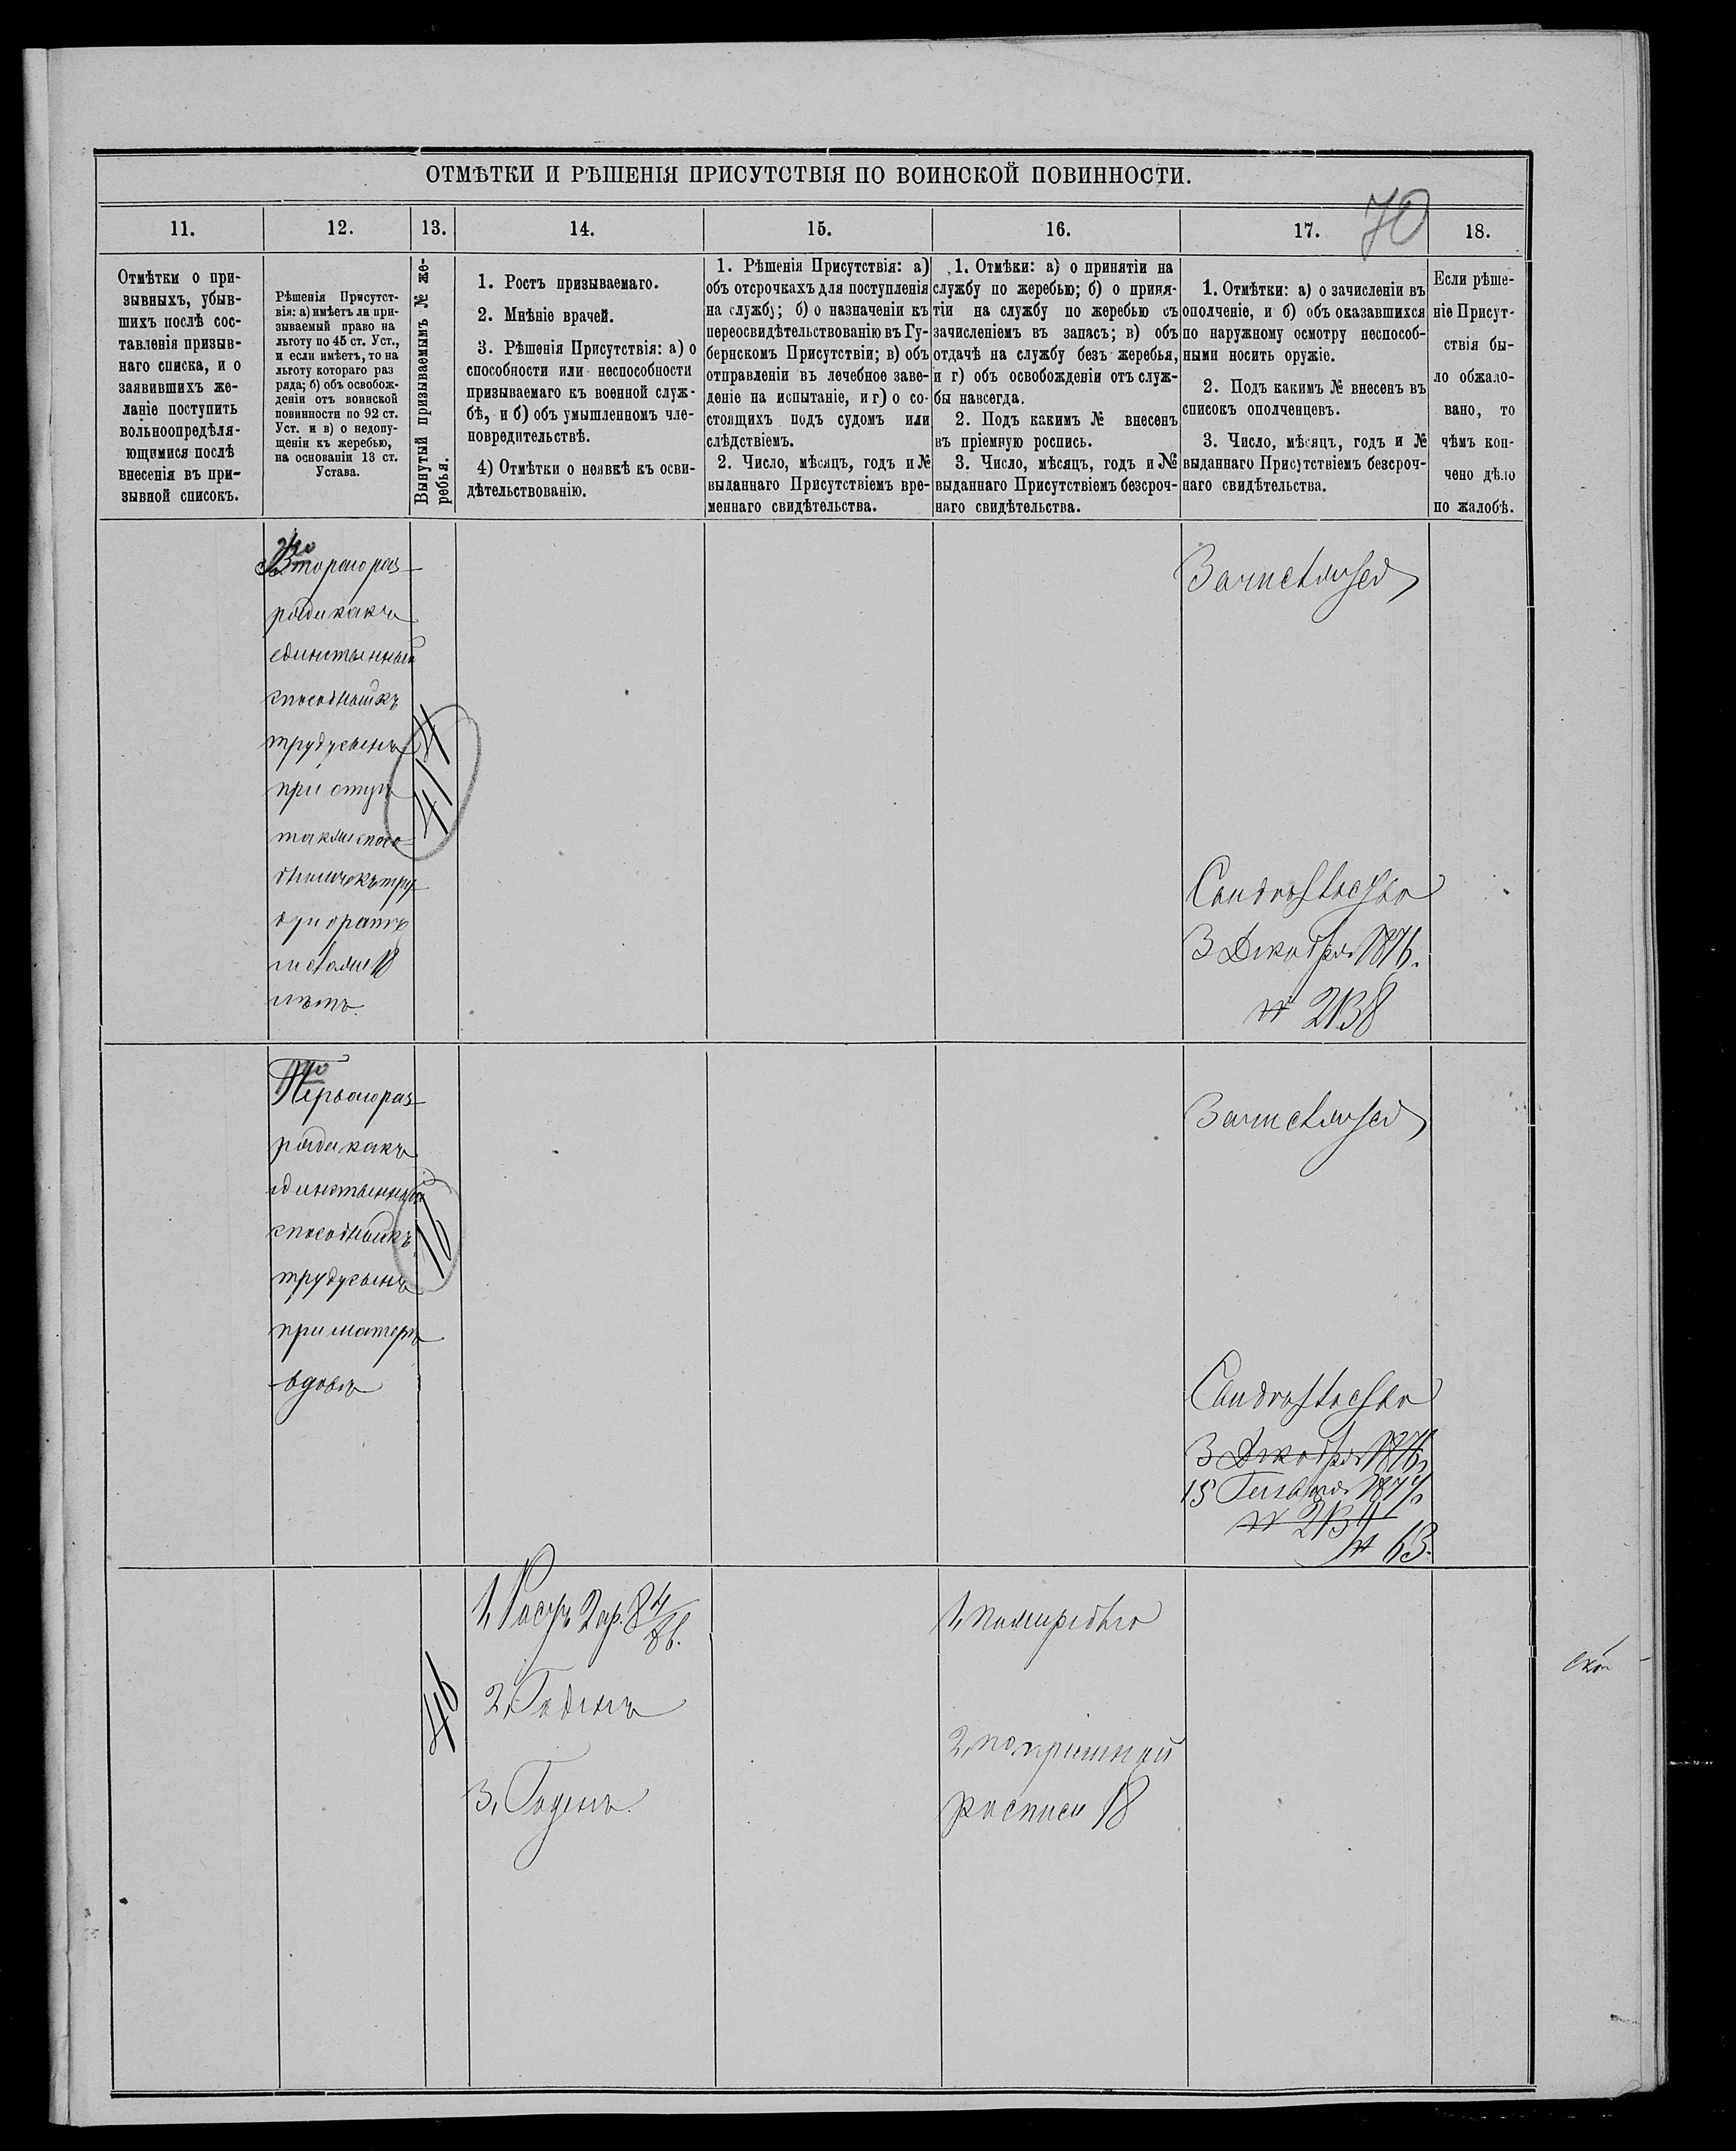 ОТМѢТКИ И РѢШЕНІЯ ПРИСУТСТВІЯ ПО ВОИНСКОЙ ПОВИННОСТИ.
70
11.
12.
13.
14.
15.
16.
17.
18.
Отмѣтки о при-
зывныхъ, убыв-
шихъ послѣ сос-
тавленія призыв-
наго списка, и о
заявившихъ же-
ланіе поступить
вольноопредѣля-
ющимися послѣ
внесенія въ при-
зывной списокъ.
Рѣшенія Присутст-
вія: а) имѣетъ ли при-
зываемый право на
льготу по 45 ст. Уст.,
и если имѣетъ, то на
льготу котораго раз
ряда; б) объ освобож-
деніи отъ воинской
повинности по 92 ст.
Уст. и в) о недопу-
щеніи къ жеребью,
на основаніи 13 ст.
Устава.
Вынутый призываемымъ № же-
ребья.
1. Ростъ призываемаго.
2. Мнѣніе врачей.
3. Рѣшенія Присутствія: а) о
способности или неспособности
призываемаго къ военной служ-
бѣ, и б) объ умышленномъ чле-
новредительствѣ.
4) Отмѣтки о неявкѣ къ осви-
дѣтельствованію.
1. Рѣшенія Присутствія: а)
объ отсрочкахъ для поступленія
на службу; б) о назначеніи къ
переосвидѣтельствованію въ Гу-
бернскомъ Присутствіи; в) объ
отправленіи въ лечебное заве-
деніе на испытаніе, и г) о со-
стоящихъ подъ судомъ или
слѣдствіемъ.
2. Число, мѣсяцъ, годъ и №
выданнаго Присутствіемъ вре-
меннаго свидѣтельства.
1. Отмѣки: а) о принятіи на
службу по жеребью; б) о приня-
тіи на службу по жеребью съ
зачисленіемъ въ запасъ; в) объ
отдачѣ на службу безъ жеребья,
и г) объ освобожденіи отъ служ-
бы навсегда.
2. Подъ какимъ № внесенъ
въ пріемную роспись.
3. Число, мѣсяцъ, годъ и №
выданнаго Присутствіемъ безсроч-
наго свидѣтельства.
1. Отмѣтки: а) о зачисленіи въ
ополченіе, и б) объ оказавшихся
по наружному осмотру неспособ-
ными носить оружіе.
2. Подъ какимъ № внесенъ въ
списокъ ополченцевъ.
3. Число, мѣсяцъ, годъ и №
выданнаго Присутствіемъ безсроч-
наго свидѣтельства.
Если рѣше-
ніе Присут-
ствія бы-
ло обжало-
вано, то
чѣмъ кон-
чено дѣло
по жалобѣ.
2го
Втораго раз-
ряда какъ
единственный
способный къ
труду сынъ
при отцѣ
также спосо-
бномъ къ тру-
ду и братѣ
не болѣе 18
лѣтъ.
414
Зачисляется
Свидѣтельство
3 Декабря 1876.
№ 2138
1го
Перваго раз-
ряда какъ
единственный
способный къ
труду сынъ
при матери
вдовѣ
16
Зачисляется
Свидѣтельство
3 Декабря 1876
15 Генваря 1877
№ 63.
46
1, Ростъ 2 ар. 8 4/8 в.
2, Годенъ
3, Годенъ.
2, по пріемной
росписи 18